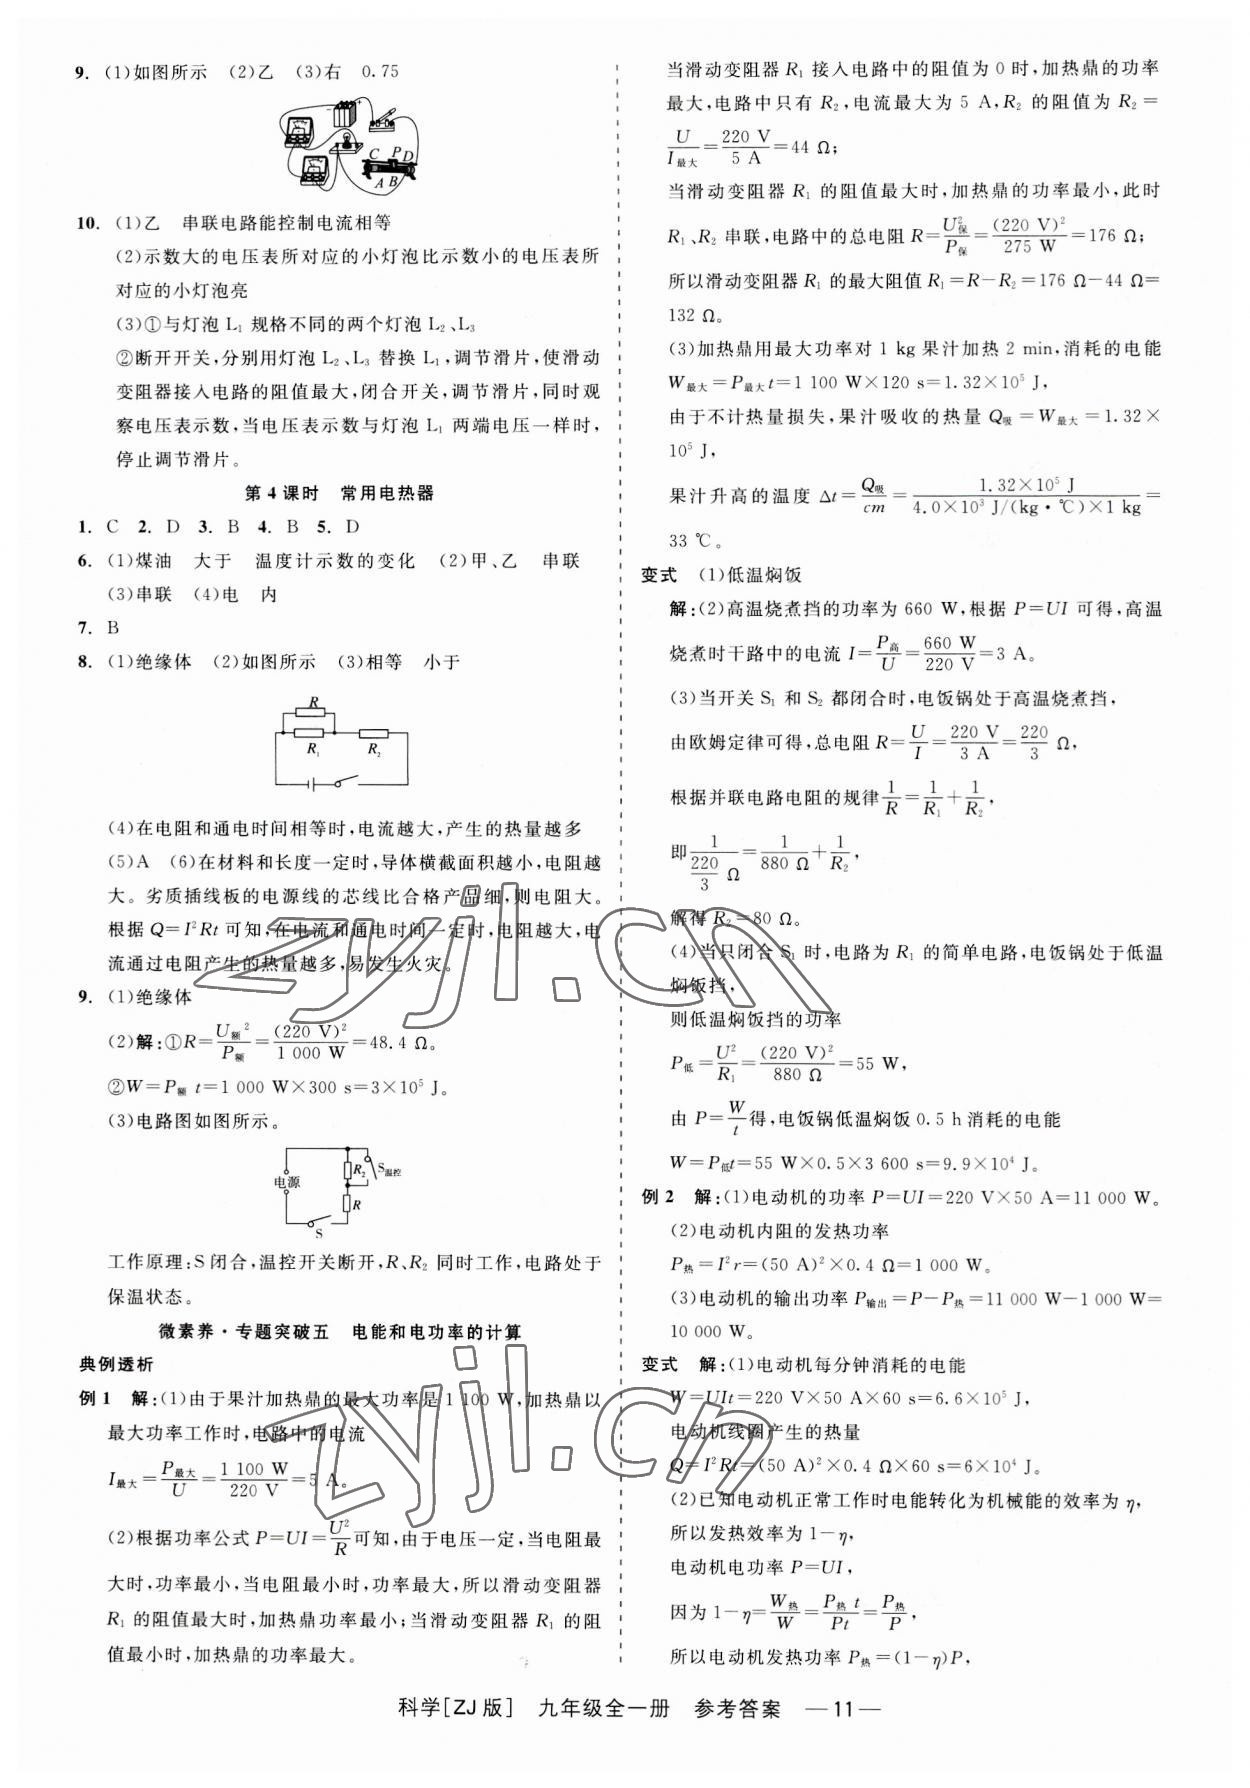 9. (1)如图所示 (2)乙 (3)右 0.75
C P D
A B
10. (1)乙 串联电路能控制电流相等
(2)示数大的电压表所对应的小灯泡比示数小的电压表所
对应的小灯泡亮
(3)①与灯泡 L₁ 规格不同的两个灯泡 L₂、L₃
②断开开关,分别用灯泡 L₂、L₃ 替换 L₁,调节滑片,使滑动
变阻器接入电路的阻值最大,闭合开关,调节滑片,同时观
察电压表示数,当电压表示数与灯泡 L₁ 两端电压一样时,
停止调节滑片。
第 4 课时 常用电热器
1. C 2. D 3. B 4. B 5. D
6. (1)煤油 大于 温度计示数的变化 (2)甲、乙 串联
(3)串联 (4)电 内
7. B
8. (1)绝缘体 (2)如图所示 (3)相等 小于
R
R₁ R₂
(4)在电阻和通电时间相等时,电流越大,产生的热量越多
(5)A (6)在材料和长度一定时,导体横截面积越小,电阻越
大。劣质插线板的电源线的芯线比合格产品细,则电阻大。
根据 Q=I²Rt 可知,在电流和通电时间一定时,电阻越大,电
流通过电阻产生的热量越多,易发生火灾。
9. (1)绝缘体
(2)解:①R=U额²/P额=(220 V)²/1 000 W=48.4 Ω。
②W=P额 t=1 000 W×300 s=3×10⁵ J。
(3)电路图如图所示。
电源 R₂ S温控
R
S
工作原理:S 闭合,温控开关断开,R、R₂ 同时工作,电路处于
保温状态。
微素养·专题突破五 电能和电功率的计算
典例透析
例 1 解:(1)由于果汁加热鼎的最大功率是 1 100 W,加热鼎以
最大功率工作时,电路中的电流
I最大=P最大/U=1 100 W/220 V=5 A。
(2)根据功率公式 P=UI=U²/R可知,由于电压一定,当电阻最
大时,功率最小,当电阻最小时,功率最大,所以滑动变阻器
R₁ 的阻值最大时,加热鼎功率最小;当滑动变阻器 R₁ 的阻
值最小时,加热鼎的功率最大。
当滑动变阻器 R₁ 接入电路中的阻值为 0 时,加热鼎的功率
最大,电路中只有 R₂,电流最大为 5 A,R₂ 的阻值为 R₂=
U/I最大=220 V/5 A=44 Ω;
当滑动变阻器 R₁ 的阻值最大时,加热鼎的功率最小,此时
R₁、R₂ 串联,电路中的总电阻 R=U保²/P保=(220 V)²/275 W=176 Ω;
所以滑动变阻器 R₁ 的最大阻值 R₁=R−R₂=176 Ω−44 Ω=
132 Ω。
(3)加热鼎用最大功率对 1 kg 果汁加热 2 min,消耗的电能
W最大=P最大t=1 100 W×120 s=1.32×10⁵ J,
由于不计热量损失,果汁吸收的热量 Q吸=W最大=1.32×
10⁵ J,
果汁升高的温度 Δt=Q吸/cm=1.32×10⁵ J/4.0×10³ J/(kg·℃)×1 kg=
33 ℃。
变式 (1)低温焖饭
解:(2)高温烧煮挡的功率为 660 W,根据 P=UI 可得,高温
烧煮时干路中的电流 I=P高/U=660 W/220 V=3 A。
(3)当开关 S₁ 和 S₂ 都闭合时,电饭锅处于高温烧煮挡,
由欧姆定律可得,总电阻 R=U/I=220 V/3 A=220/3 Ω,
根据并联电路电阻的规律1/R=1/R₁+1/R₂,
即1/(220/3 Ω)=1/880 Ω+1/R₂,
解得 R₂=80 Ω。
(4)当只闭合 S₁ 时,电路为 R₁ 的简单电路,电饭锅处于低温
焖饭挡,
则低温焖饭挡的功率
P低=U²/R₁=(220 V)²/880 Ω=55 W,
由 P=W/t得,电饭锅低温焖饭 0.5 h 消耗的电能
W=P低t=55 W×0.5×3 600 s=9.9×10⁴ J。
例 2 解:(1)电动机的功率 P=UI=220 V×50 A=11 000 W。
(2)电动机内阻的发热功率
P热=I²r=(50 A)²×0.4 Ω=1 000 W。
(3)电动机的输出功率 P输出=P−P热=11 000 W−1 000 W=
10 000 W。
变式 解:(1)电动机每分钟消耗的电能
W=UIt=220 V×50 A×60 s=6.6×10⁵ J,
电动机线圈产生的热量
Q=I²Rt=(50 A)²×0.4 Ω×60 s=6×10⁴ J。
(2)已知电动机正常工作时电能转化为机械能的效率为 η,
所以发热效率为 1−η,
电动机电功率 P=UI,
因为 1−η=W热/W=P热 t/Pt=P热/P,
所以电动机发热功率 P热=(1−η)P,
zyjl.cn
zyjl.cn
科学[ZJ 版] 九年级全一册 参考答案 —11—